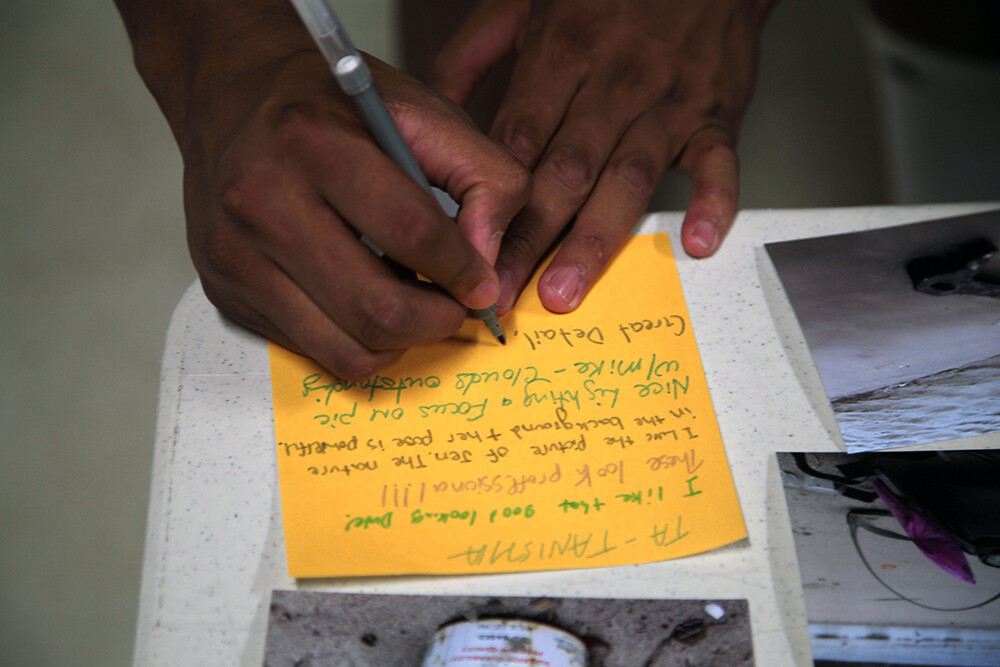 TA - TANISHA
I like that good looking Dude!
These look professional!!!
I Love the picture of Jen. The nature
in the background & her pose is powerful.
Nice Lighting & Focus on pic
w/mike - Clouds outstanding
Great Detail.